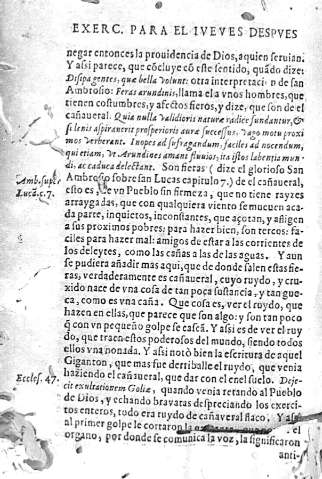 EXERC. PARA EL IVEVES DESPVES
negar entonces la prouidencia de Dios, a quien seruian.
Y assi parece, que cōcluye cō este sentido, quādo dize:
Dissipa gentes, quæ bella volunt: otra interpretaciō n de san
Ambrosio: Feras arundinis, llama el a vnos hombres, que
tienen costumbres, y afectos fieros, y dize, que son de el
cañaueral. Quia nulla validioris naturæ radice fundantur, &
si lenis aspirauerit prosperioris auræ successus, vago motu proxi
mos verberant. Inopes ad sufragandum, faciles ad nocendum,
qui etiam, vt Arundines amant fluuios; ita istos labentia mun
di, ac caduca delectant. Son fieras (dize el glorioso San
Ambrosio sobre san Lucas capitulo 7.) de el cañaueral,
Amb. super
Luca. c. 7.
esto es, de vn Pueblo sin firmeza, que no tiene rayzes
arraygadas, que con qualquiera viento se mueuen aca
da parte, inquietos, inconstantes, que açotan, y afligen
a sus proximos pobres: para hazer bien, son tercos: fa-
ciles para hazer mal: amigos de estar a las corrientes de
los deleytes, como las cañas a las de las aguas. Y aun
se pudiera añadir mas aqui, que de donde salen estas fie
ras, verdaderamente es cañaueral, cuyo ruydo, y cru-
xido nace de vna cosa de tan poca sustancia, y tan gue-
ca, como es vna caña. Que cosa es, ver el ruydo, que
hazen en ellas, que parece que son algo: y son tan poco
q̄ con vn pequeño golpe se casca. Y assi es de ver el ruy
do, que traen estos poderosos del mundo, siendo todo
ellos vna nonada. Y assi notò bien la escritura de aquel
Giganton, que mas fue derriballe el ruydo, que venia
haziendo el cañaueral, que dar con el en el suelo. Deje-
Eccles. 47.
cit exultationem Goliæ, quando venia retando al Pueblo
de Dios, y echando brauatas despreciando los exerci-
tos enteros, todo era ruydo de cañaueral flaco, Y assi
al primer golpe le cortaron la el
organo, por donde se comunica la voz, la significaron
anti-